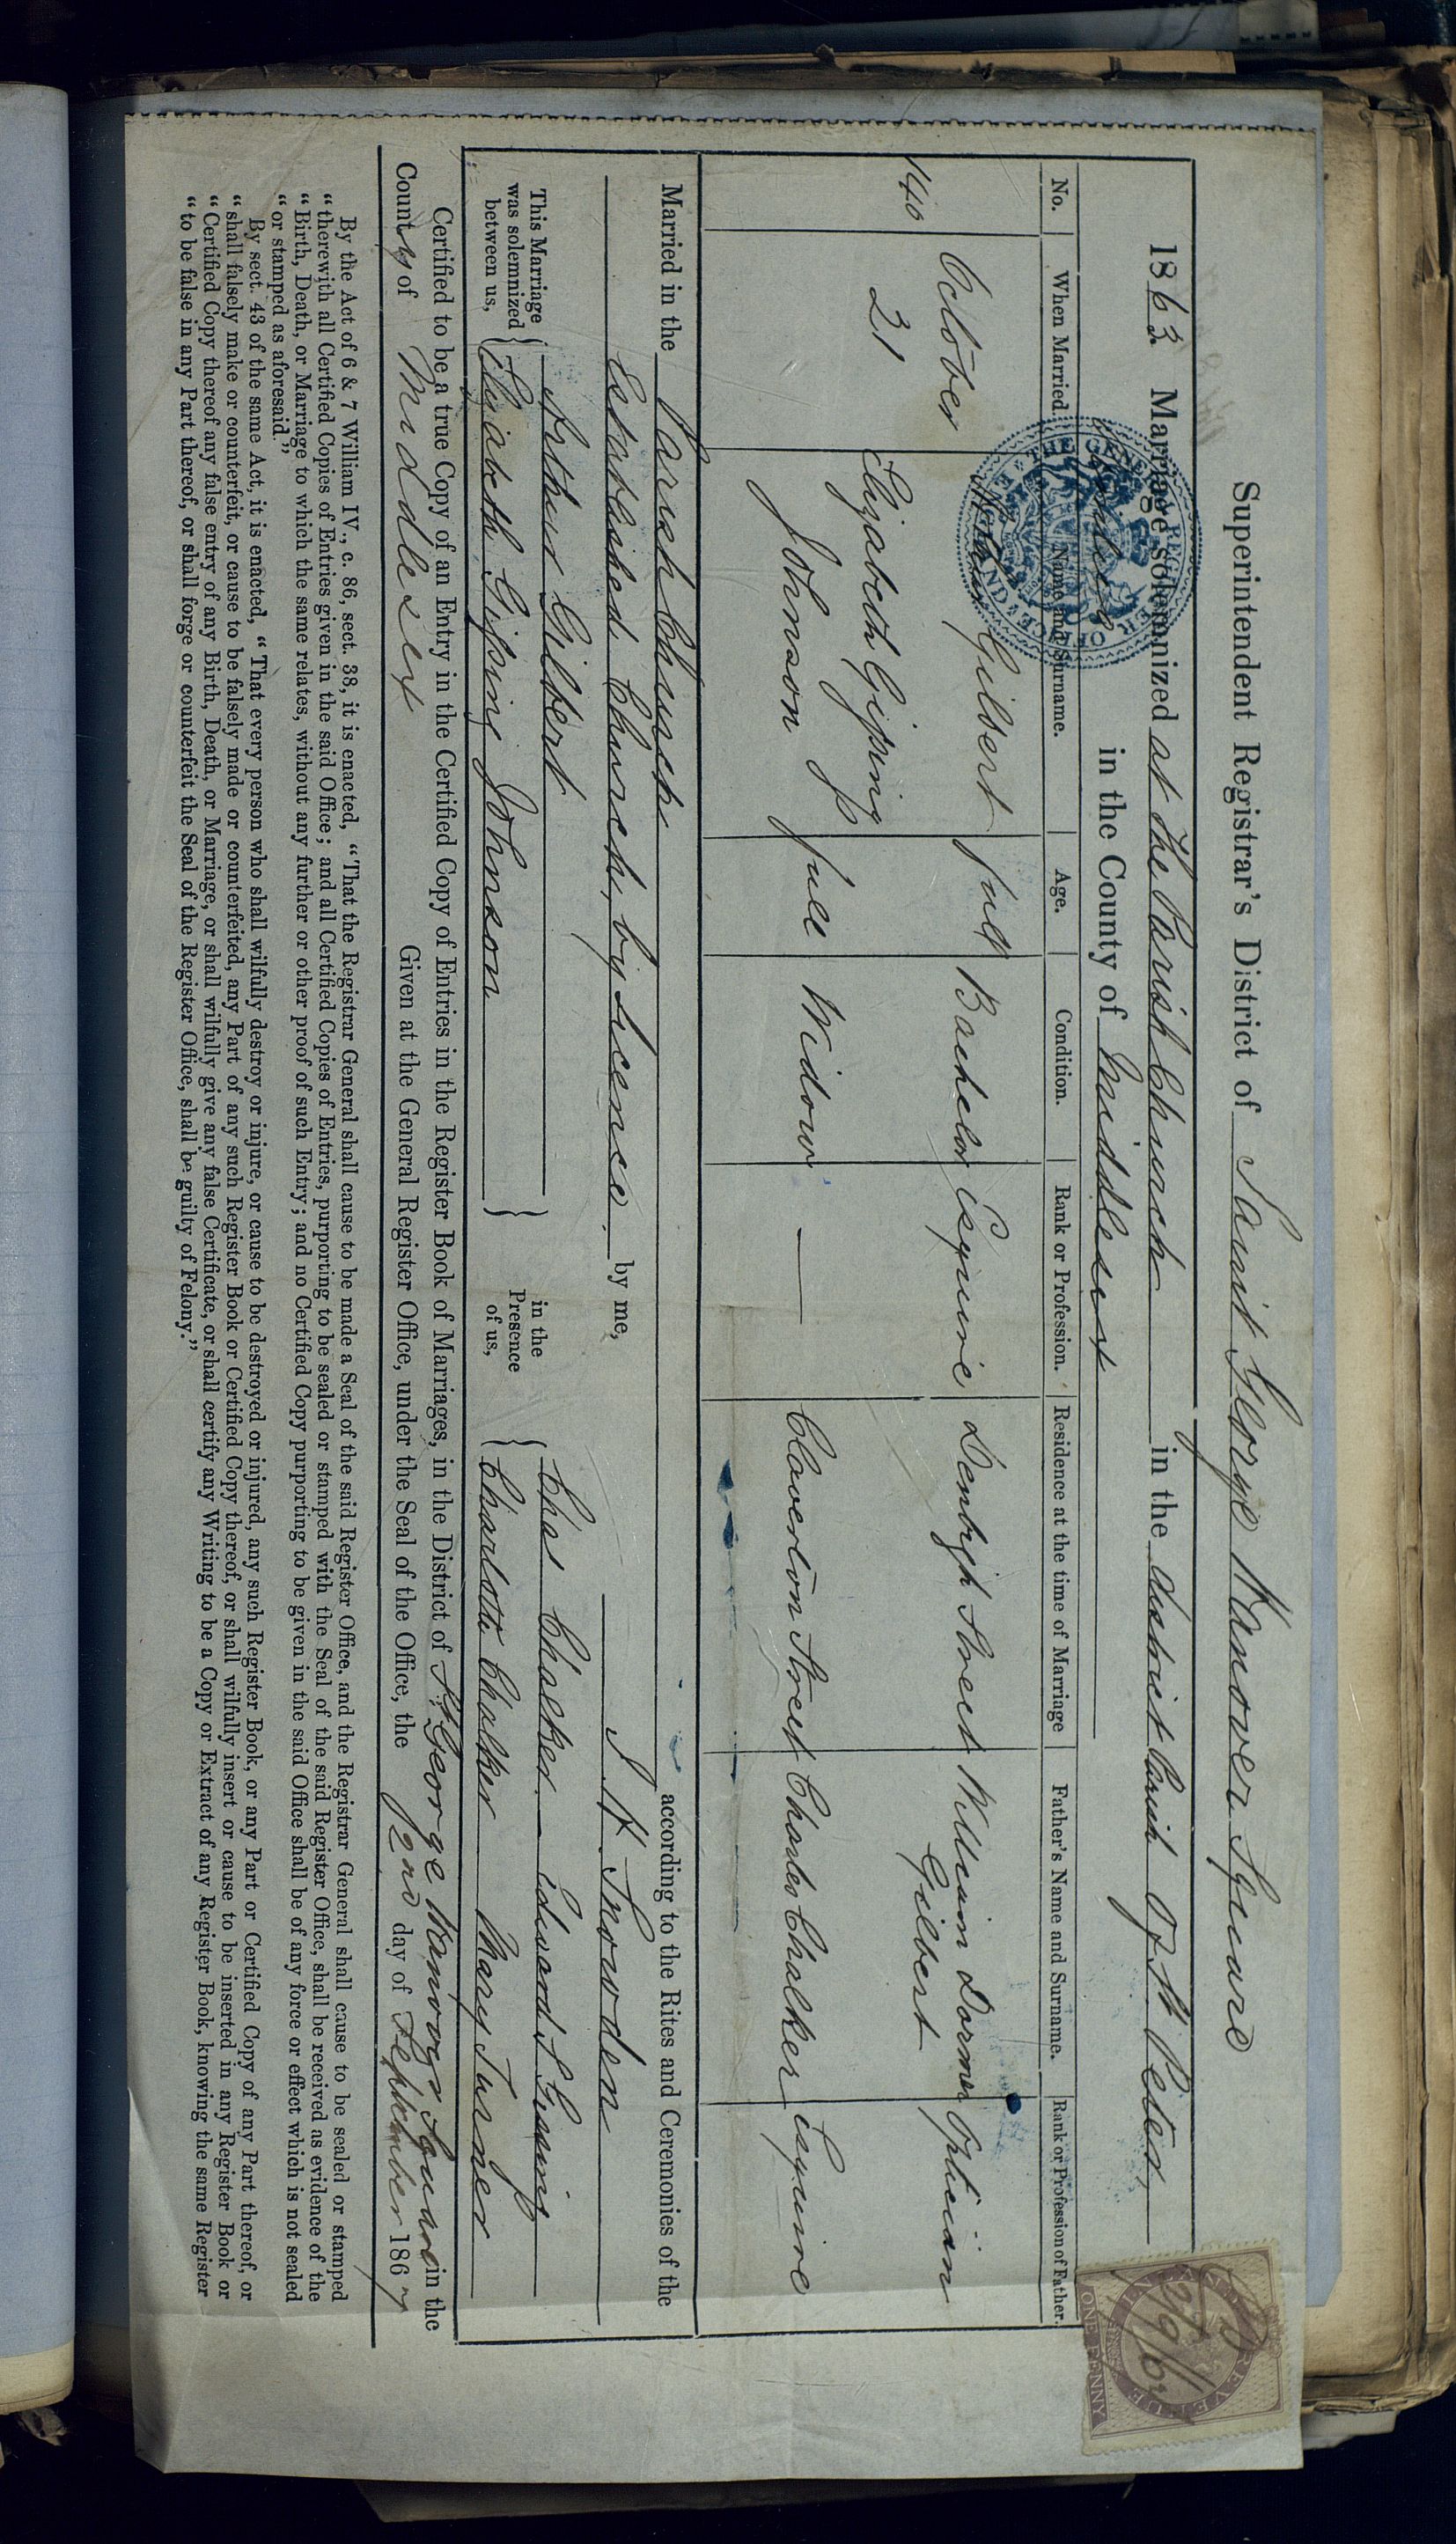 Superintendent Registrar's District of Saint George Hanover Square
1863. Marriage solemnized at the Parish Church in the district Parish of St Peter,
Pimlico in the County of Middlesex
No. When Married. Name and Surname. Age. Condition. Rank or Profession. Residence at the time of Marriage Father's Name and Surname. Rank or Profession of Father.
140 October 21 Arthur Gilbert full Bachelor Esquire Denbigh Street William Dormer Gilbert Optician
Elizabeth Gissing Johnson full Widow — Claverton Street Charles Chalker Esquire
Married in the Parish Church according to the Rites and Ceremonies of the
Established Church, by Licence. by me, J H Snowden
This Marriage was solemnized between us, Arthur Gilbert in the Presence of us, Chas Chalker — Edward Gissing
Elizabeth Gissing Johnson Charlotte Chalker Mary Turner
Certified to be a true Copy of an Entry in the Certified Copy of Entries in the Register Book of Marriages, in the District of St. George Hanover Square in the
County of Middlesex Given at the General Register Office, under the Seal of the Office, the 2nd day of September 1867
By the Act of 6 & 7 William IV., c. 86, sect. 38, it is enacted, “That the Registrar General shall cause to be made a Seal of the said Register Office, and the Registrar General shall cause to be sealed or stamped
“therewith all Certified Copies of Entries given in the said Office; and all Certified Copies of Entries, purporting to be sealed or stamped with the Seal of the said Register Office, shall be received as evidence of the
“Birth, Death, or Marriage to which the same relates, without any further or other proof of such Entry; and no Certified Copy purporting to be given in the said Office shall be of any force or effect which is not sealed
“or stamped as aforesaid.”
By sect. 43 of the same Act, it is enacted, “That every person who shall wilfully destroy or injure, or cause to be destroyed or injured, any such Register Book, or any Part or Certified Copy of any Part thereof, or
“shall falsely make or counterfeit, or cause to be falsely made or counterfeited, any Part of any such Register Book or Certified Copy thereof, or shall wilfully insert or cause to be inserted in any Register Book or
“Certified Copy thereof any false entry of any Birth, Death, or Marriage, or shall wilfully give any false Certificate, or shall certify any Writing to be a Copy or Extract of any Register Book, knowing the same Register
“to be false in any Part thereof, or shall forge or counterfeit the Seal of the Register Office, shall be guilty of Felony.”
GENERAL REGISTER OFFICE ENGLAND
INLAND REVENUE
ONE PENNY
2/9/67